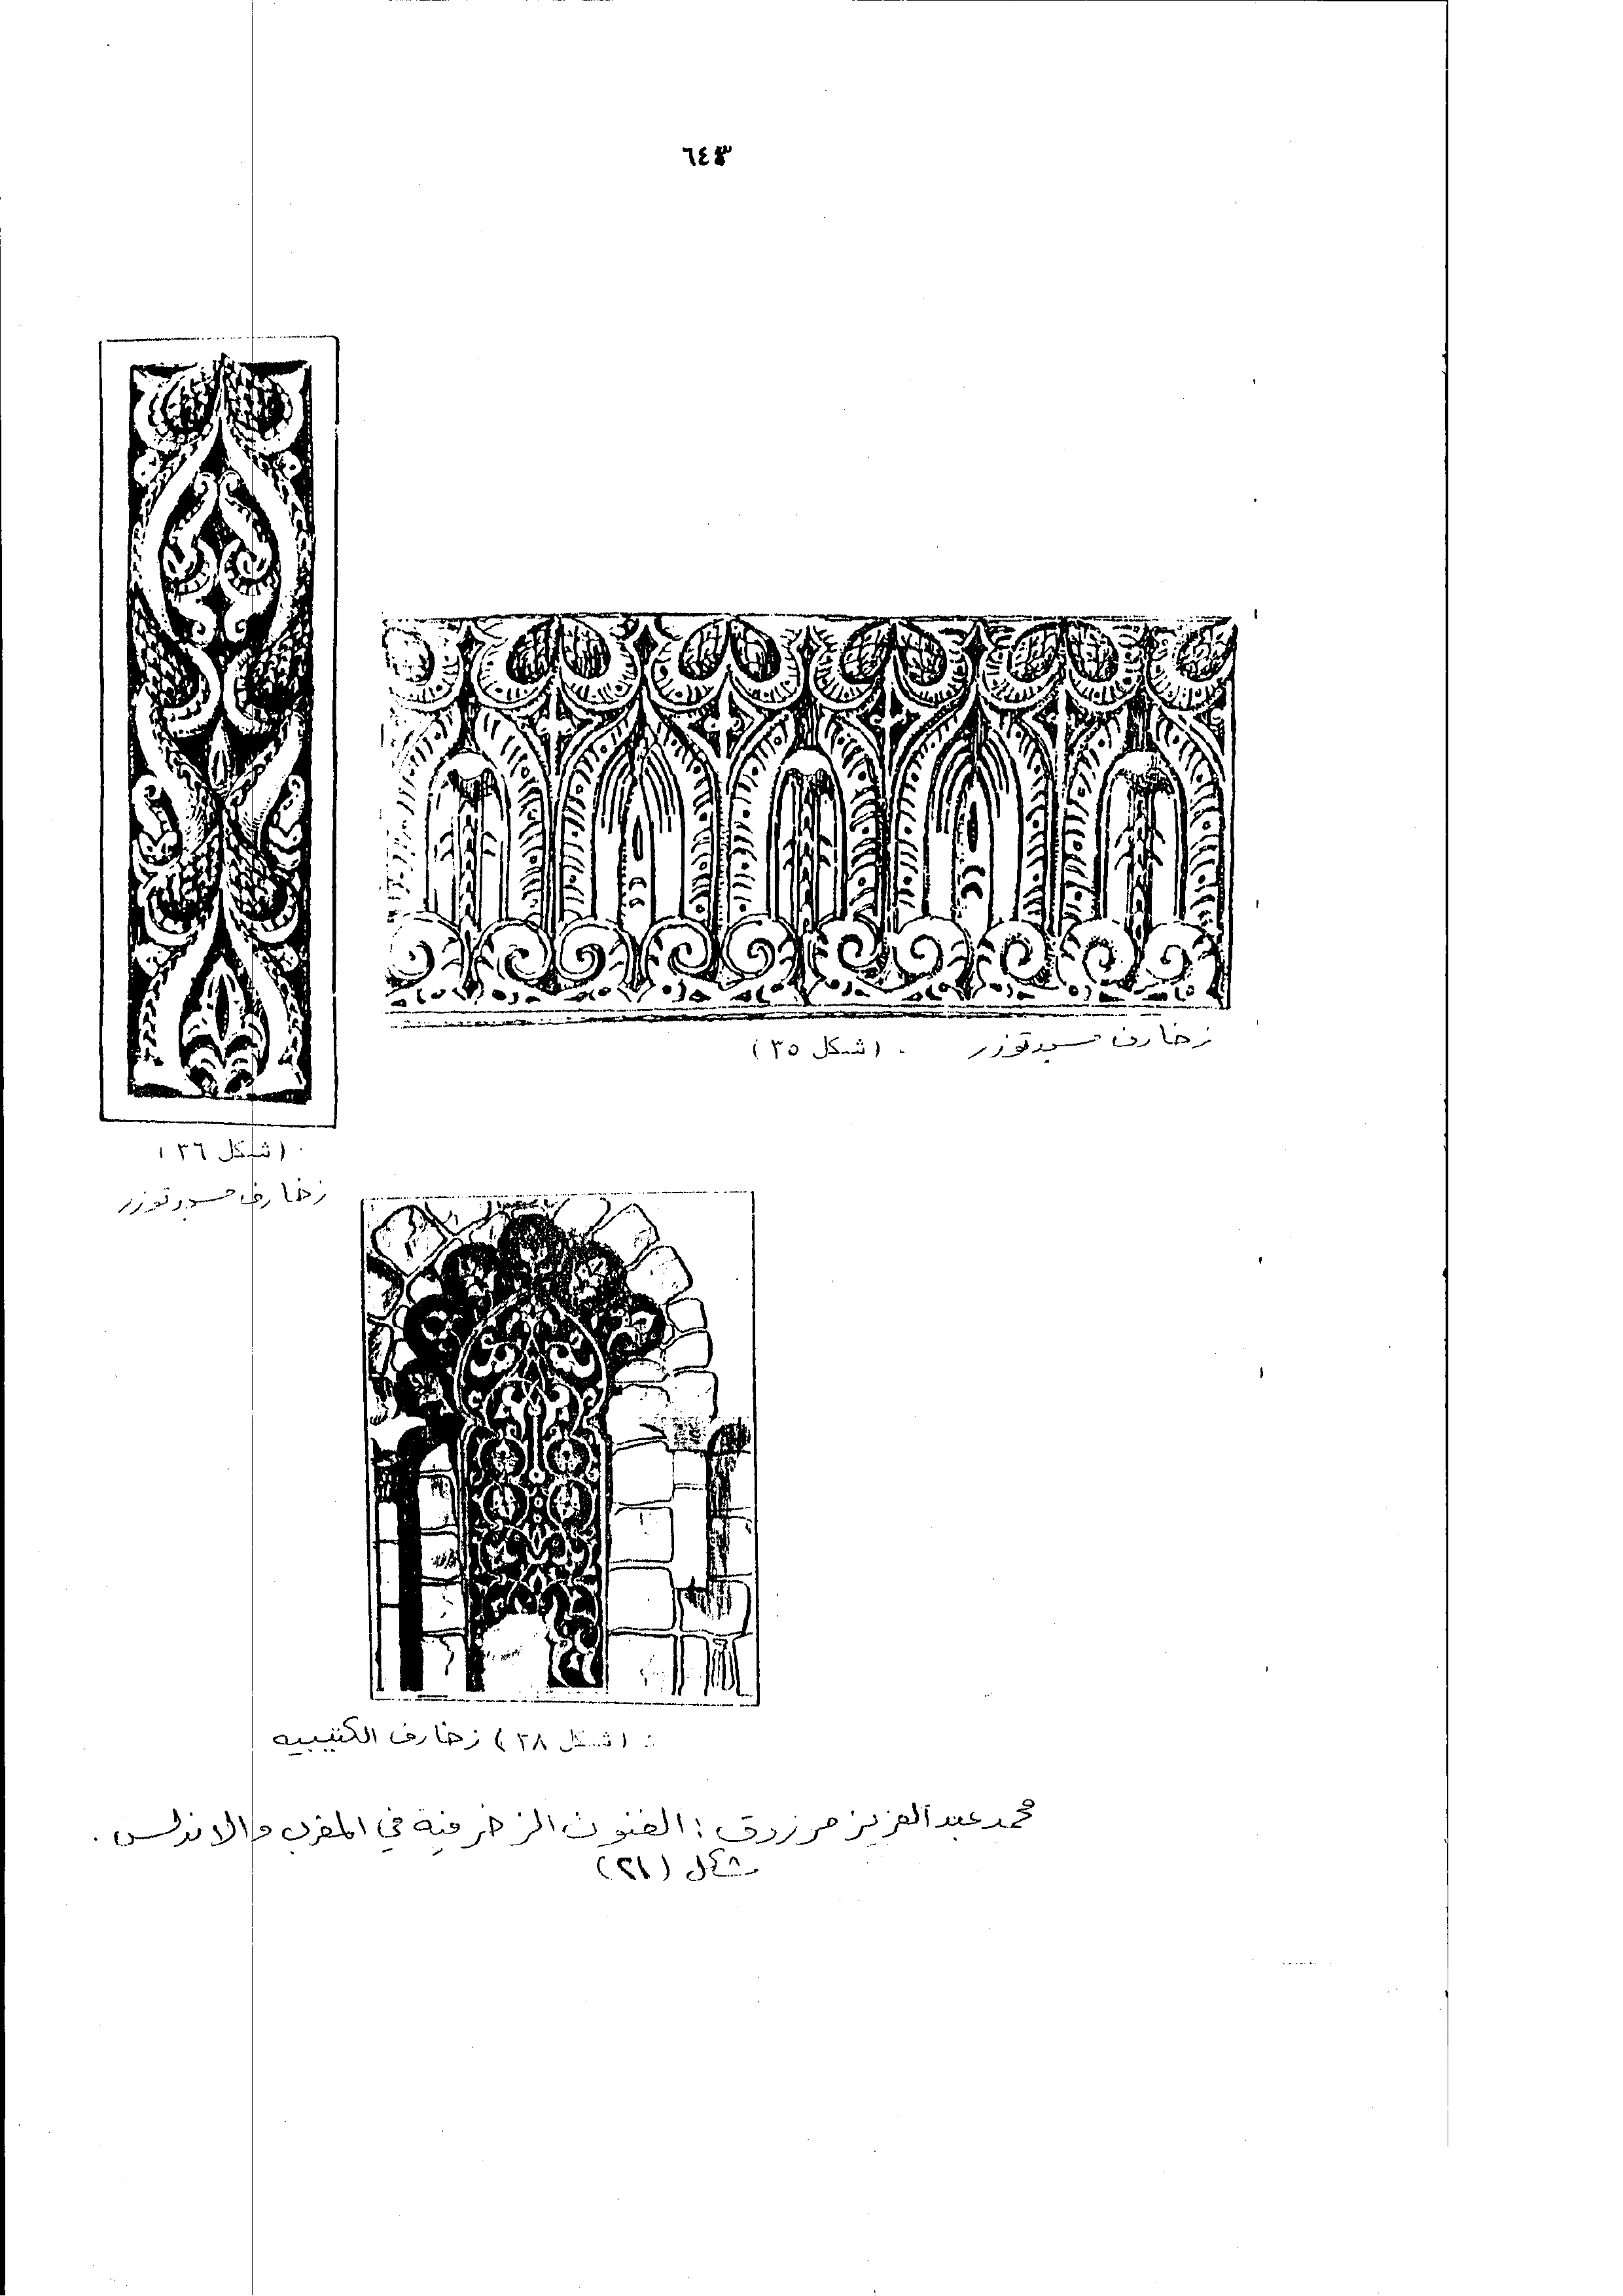 ٦٤٣
زخارف مسجد توزر . (شكل ٣٥)
. (شكل ٣٦)
زخارف مسجد توزر
: (شكل ٣٨) زخارف الكتيبيه
محمد عبد العزيز مرزوق : الفنون الزخرفية في المغرب والاندلس .
شكل (٢١)